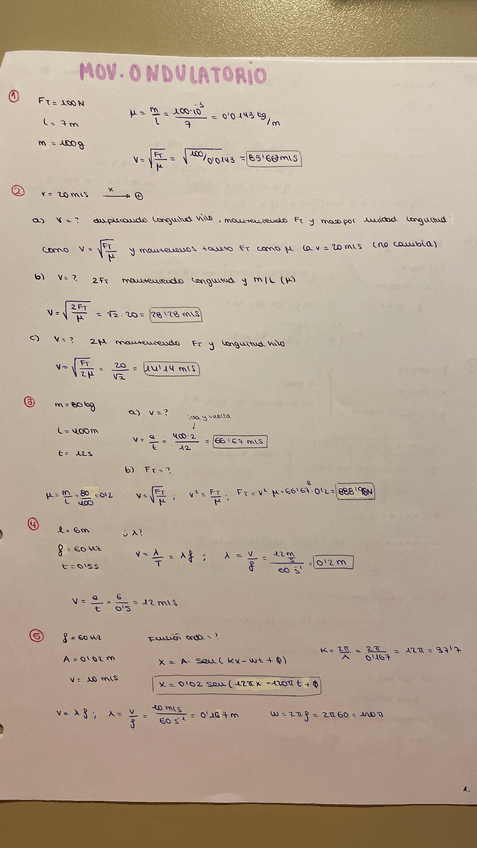 MOV. ONDULATORIO
① F_T = 100N
l = 7m
m = 100g
μ = m/l = 100·10⁻³/7 = 0'0143 kg/m
v = √(F_T/μ) = √(100/0'0143) = 83'67 m/s
② v = 20 m/s x → ⊕
a) v = ? duplicando longitud hilo, manteniendo F_T y masa por unidad longitud
como v = √(F_T/μ) y mantenemos tanto F_T como μ la v = 20 m/s (no cambia)
b) v = ? 2F_T manteniendo longitud y m/L (μ)
v = √(2F_T/μ) = √2 · 20 = 28'28 m/s
c) v = ? 2μ manteniendo F_T y longitud hilo
v = √(F_T/2μ) = 20/√2 = 14'14 m/s
③ m = 80kg
l = 400m
t = 12s
a) v = ?
ida y vuelta
v = e/t = 400·2/12 = 66'67 m/s
b) F_T = ?
μ = m/l = 80/400 = 0'2 v = √(F_T/μ) ; v² = F_T/μ ; F_T = v²·μ = 66'67²·0'2 = 888'98N
④ l = 6m ¿λ?
f = 60 Hz
t = 0'5s
v = λ/T = λf ; λ = v/f = 12 m/s / 60 s⁻¹ = 0'2 m
v = e/t = 6/0'5 = 12 m/s
⑤ f = 60 Hz Función onda = ?
A = 0'02 m x = A · sen (kx - wt + φ)
v = 10 m/s x = 0'02 sen (12πx - 120πt + φ
k = 2π/λ = 2π/0'167 = 12π = 37'7
v = λf ; λ = v/f = 10 m/s / 60 s⁻¹ = 0'167 m w = 2πf = 2π60 = 120π
1.